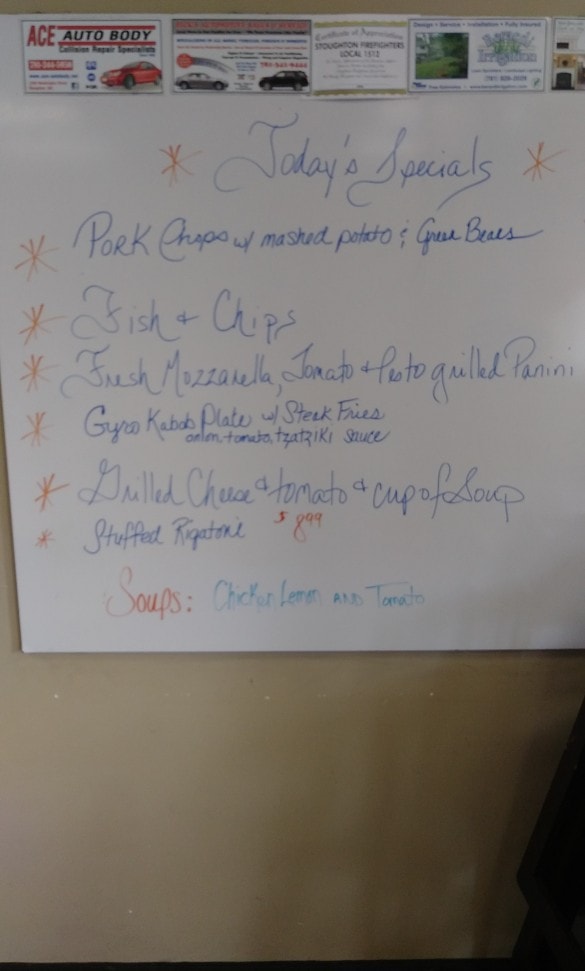 ACE AUTO BODY
Collision Repair Specialists
Certificate of Appreciation
STOUGHTON FIREFIGHTERS
LOCAL 1512
Design • Service • Installation • Fully Insured
Irrigation
Today's Specials
Pork Chops w/ mashed potato & Green Beans
Fish & Chips
Fresh Mozzarella, Tomato & Pesto grilled Panini
Gyro Kabob Plate w/ Steak Fries
onion, tomato, tzatziki sauce
Grilled Cheese & tomato & cup of Soup
Stuffed Rigatoni $ 8.99
Soups: Chicken Lemon AND Tomato